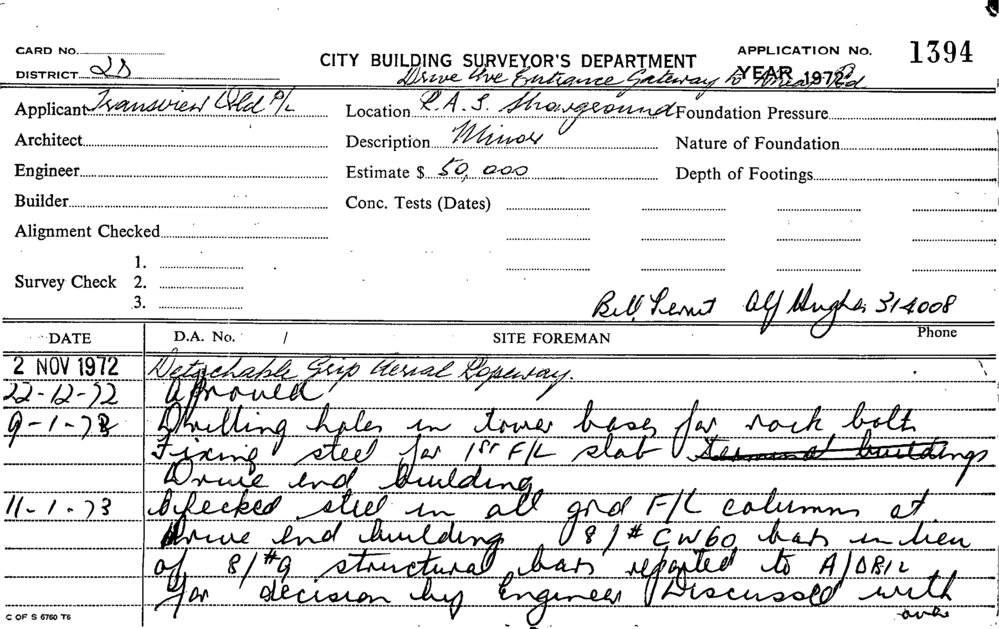 CARD No.
CITY BUILDING SURVEYOR'S DEPARTMENT
APPLICATION No. 1394
DISTRICT 2D
YEAR 1972
Drive Ave Entrance Gateway to
Applicant Transview Wld P/L
Location R.A.S. Showground
Foundation Pressure
Architect
Description Minor
Nature of Foundation
Engineer
Estimate $ 50,000
Depth of Footings
Builder
Conc. Tests (Dates)
Alignment Checked
Survey Check
1.
2.
3.
Bill Alf Hughes 314008
DATE
D.A. No. /
SITE FOREMAN
Phone
2 NOV 1972 Detachable Grip Aerial Ropeway.
22-12-72 Approved
9-1-73 Drilling holes in tower bases for rock bolts
Fixing steel for 1st F/L slab terminal buildings
Drive end building
11-1-73 Checked steel in all grd F/L columns at
Drive end building 8/# CW60 bars in lieu
of 8/#9 structural bars reported to A/DB12
for decision by Engineer Discussed with
over
C OF S 6760 T6